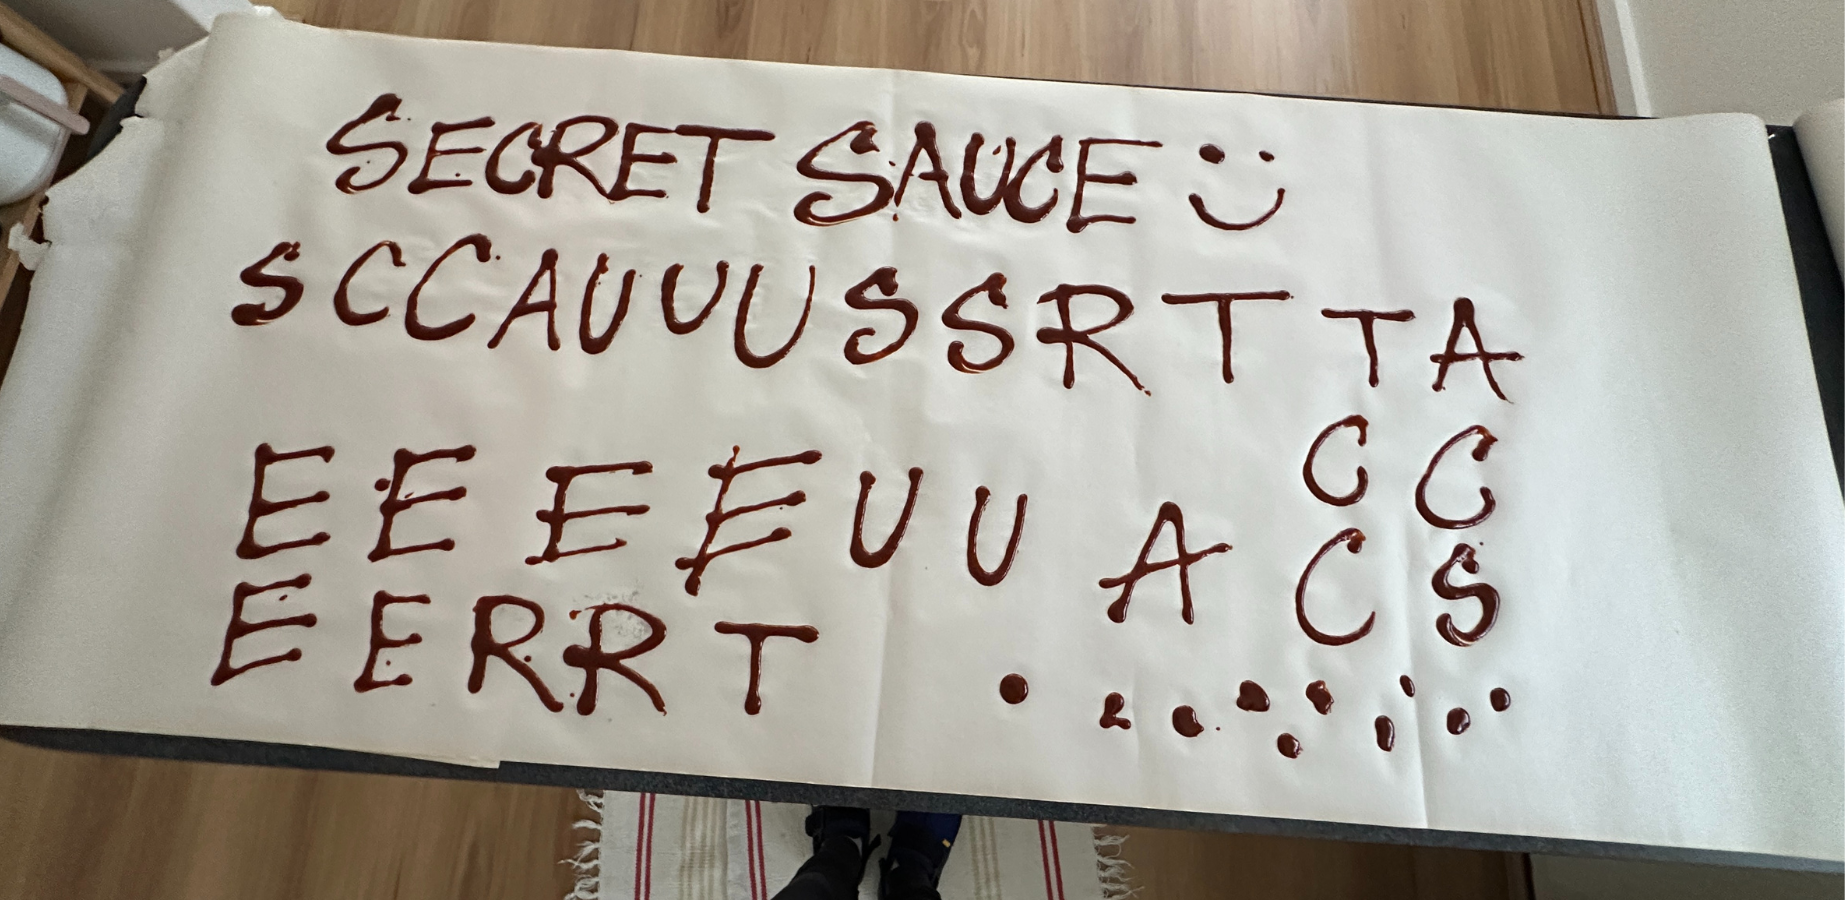 SECRET SAUCE :)
S C C A U U U S S R T T A
C C
E E E E U U A C S
E E R R T